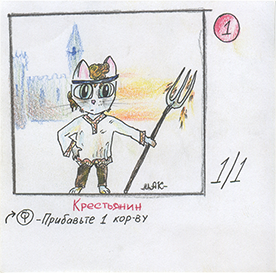 1
МЯК-
1/1
Крестьянин
-Прибавьте 1 кор-ву